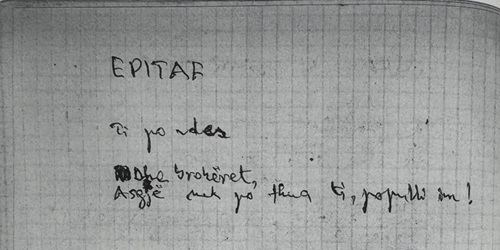 EPITAF
Ti po vdes
Dhe brohëret,
Asgjë nuk po thua ti, populli im!